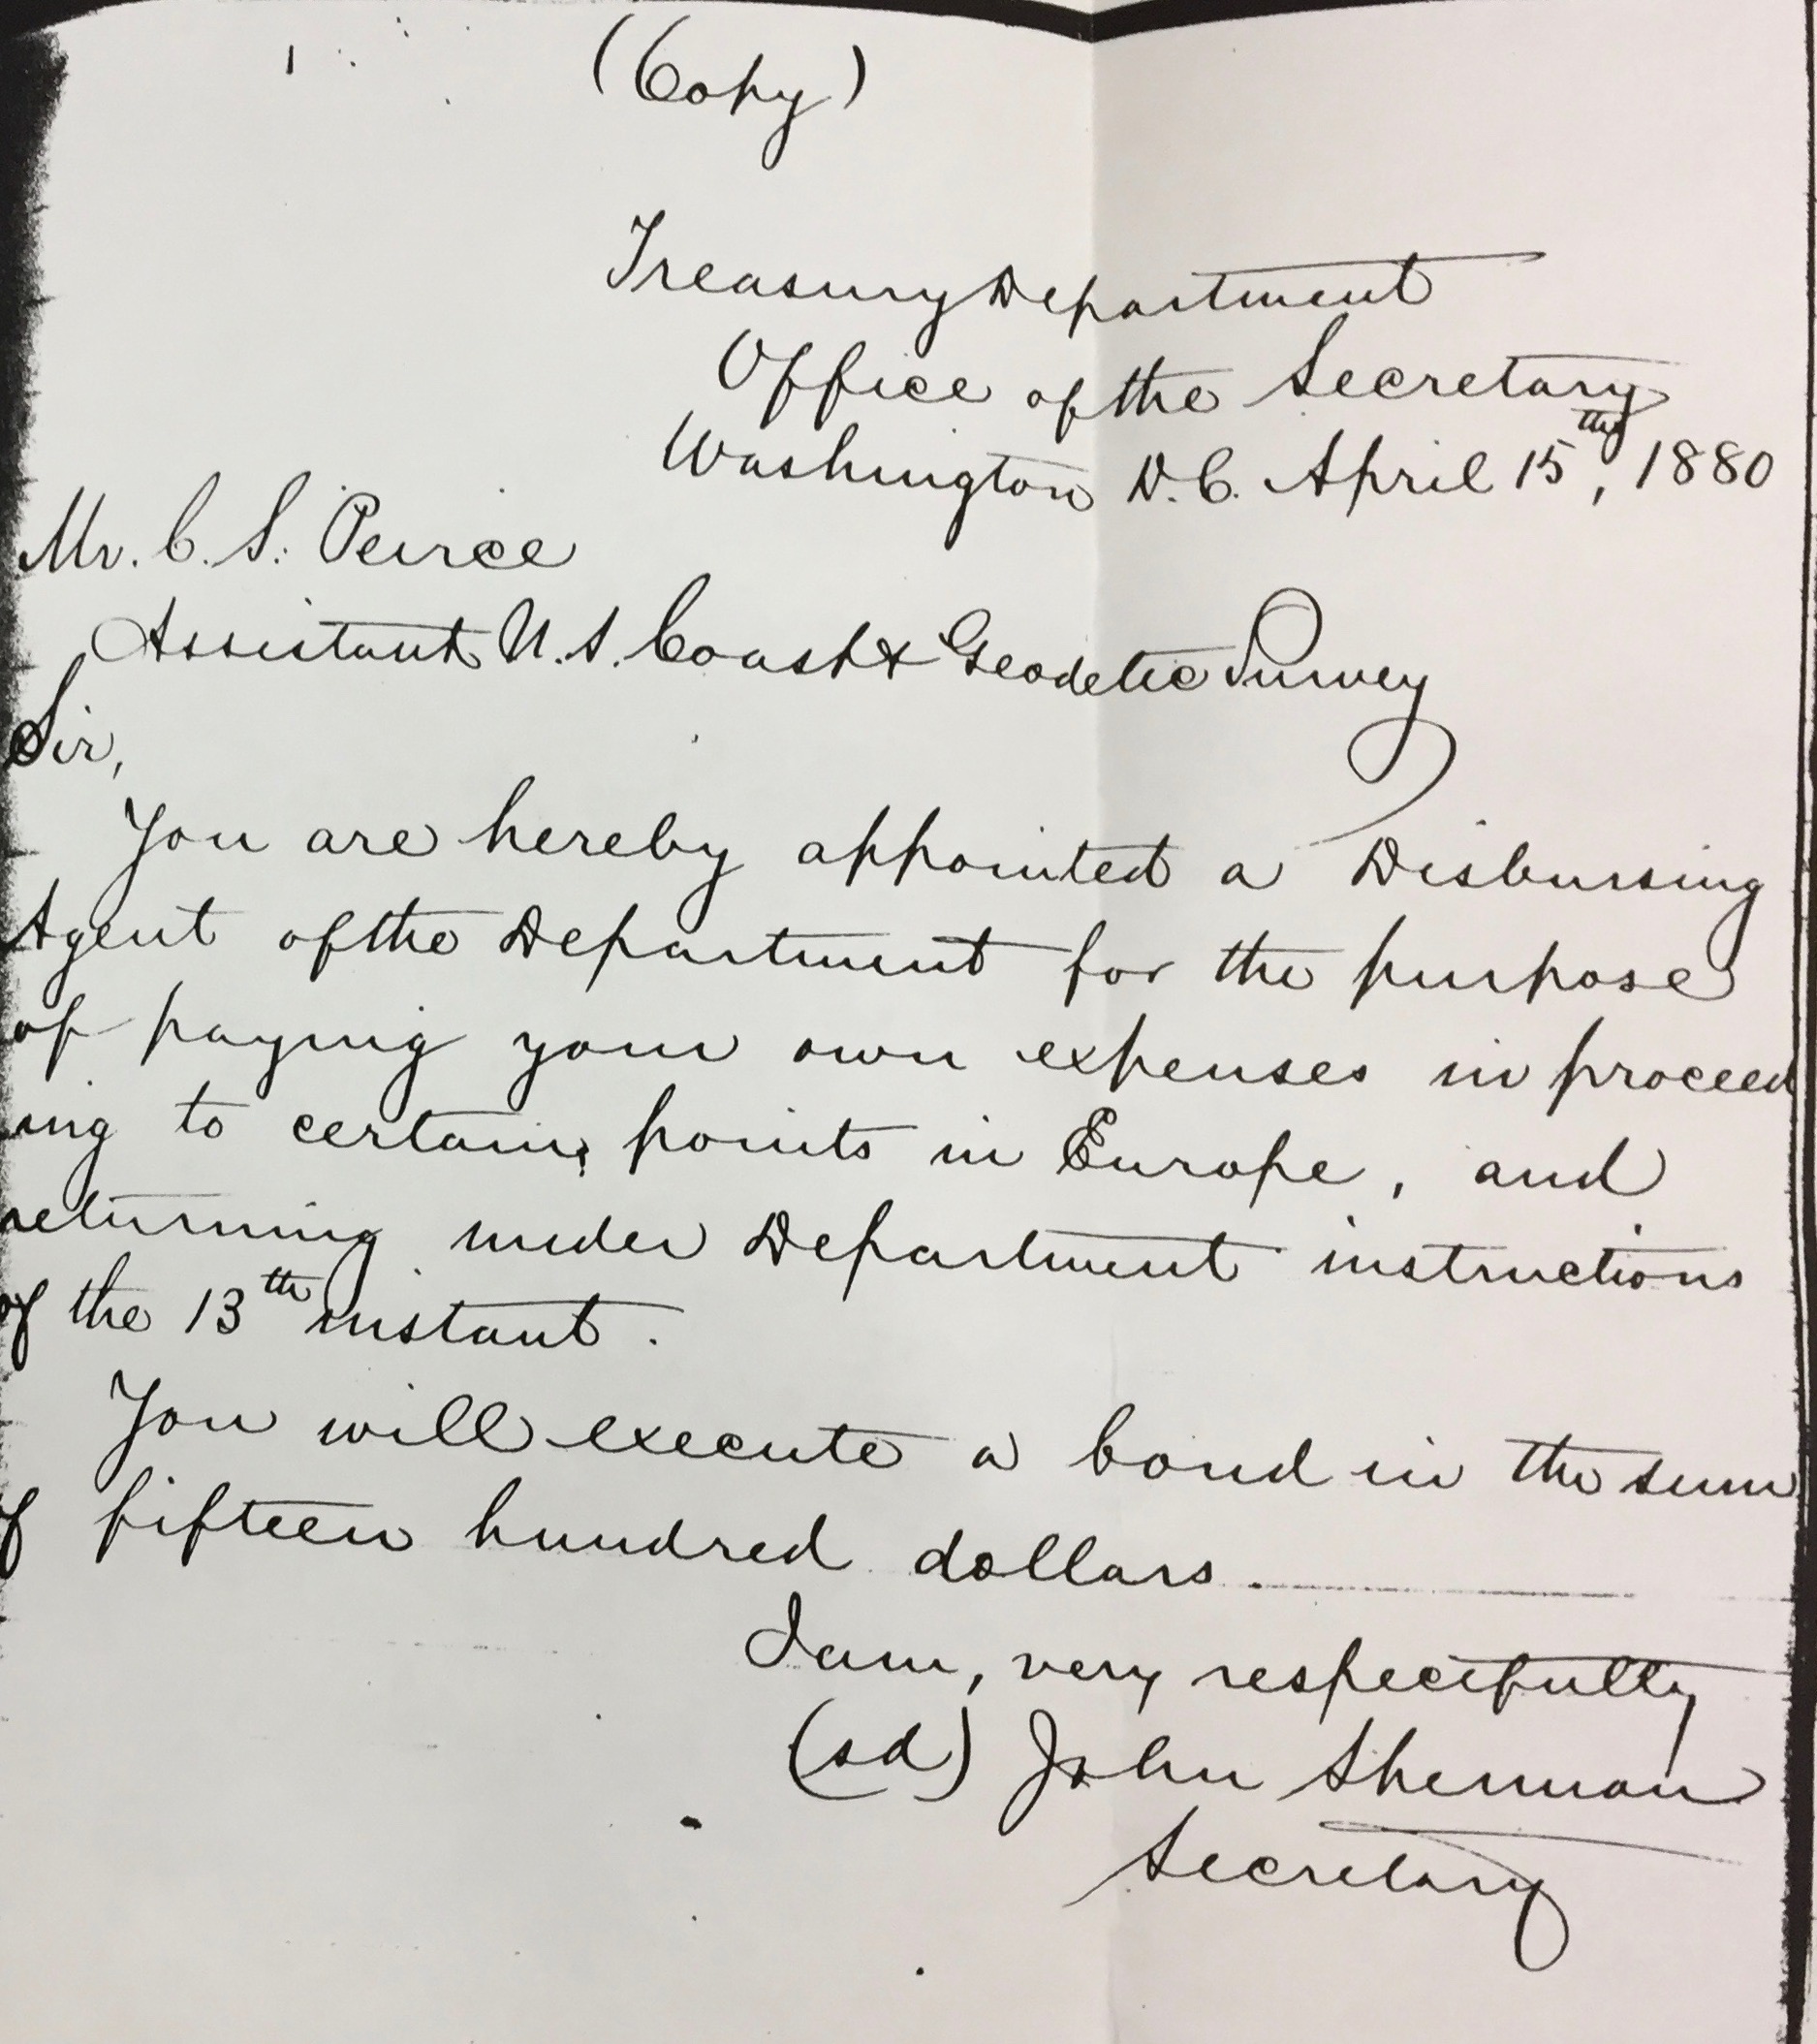 (Copy)
Treasury Department
Office of the Secretary
Washington D.C. April 15th, 1880
Mr. C. S. Peirce
Assistant U.S. Coast & Geodetic Survey
Sir,
You are hereby appointed a Disbursing
Agent of the Department for the purpose
of paying your own expenses in proceed
ing to certain points in Europe, and
returning under Department instructions
of the 13th instant.
You will execute a bond in the sum
of fifteen hundred dollars.
I am, very respectfully
(sd) John Sherman
Secretary